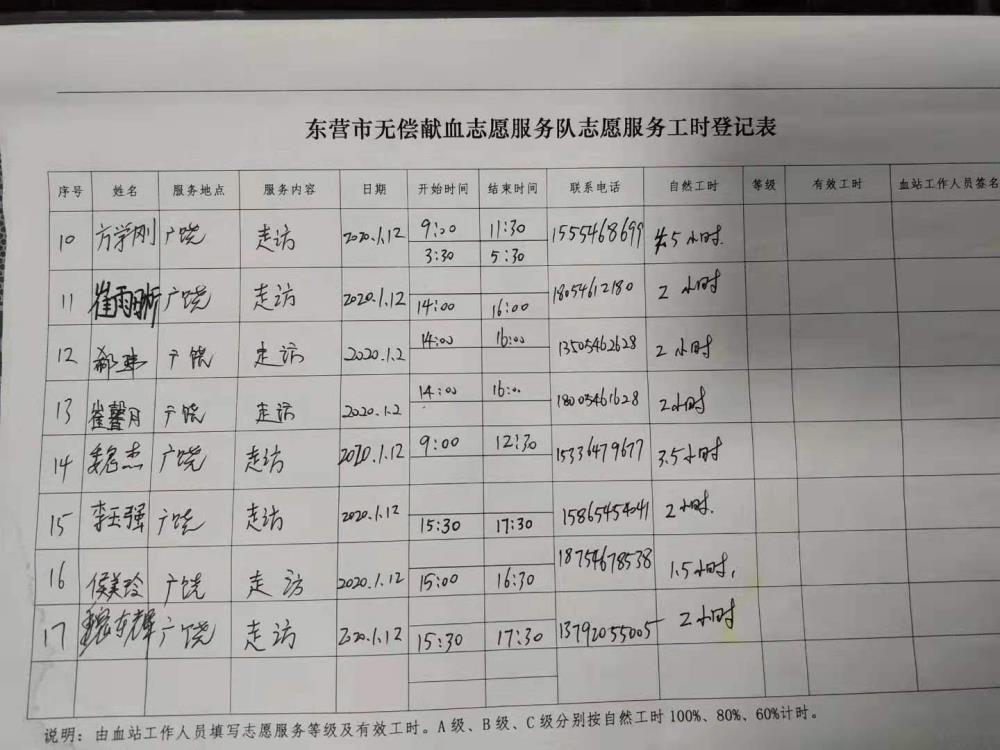 东营市无偿献血志愿服务队志愿服务工时登记表
序号 姓名 服务地点 服务内容 日期 开始时间 结束时间 联系电话 自然工时 等级 有效工时 血站工作人员签名
10 方学刚 广饶 走访 2020.1.12 9:00 11:30 15554686999 4.5小时.
3:30 5:30
11 崔雨昕 广饶 走访 2020.1.12 14:00 16:00 18054612180 2小时
12 广饶 走访 2020.1.2 14:00 16:00 13505462628 2小时
13 崔馨月 广饶 走访 2020.1.2 14:00 16:00 18005461628 2小时
14 魏杰 广饶 走访 2020.1.12 9:00 12:30 15336479677 3.5小时
15 李玉强 广饶 走访 2020.1.12 15:30 17:30 15865454041 2小时.
16 侯美玲 广饶 走访 2020.1.12 15:00 16:30 18754678538 1.5小时.
17 东辉 广饶 走访 2020.1.12 15:30 17:30 13792055005 2小时
说明：由血站工作人员填写志愿服务等级及有效工时。A级、B级、C级分别按自然工时100%、80%、60%计时。